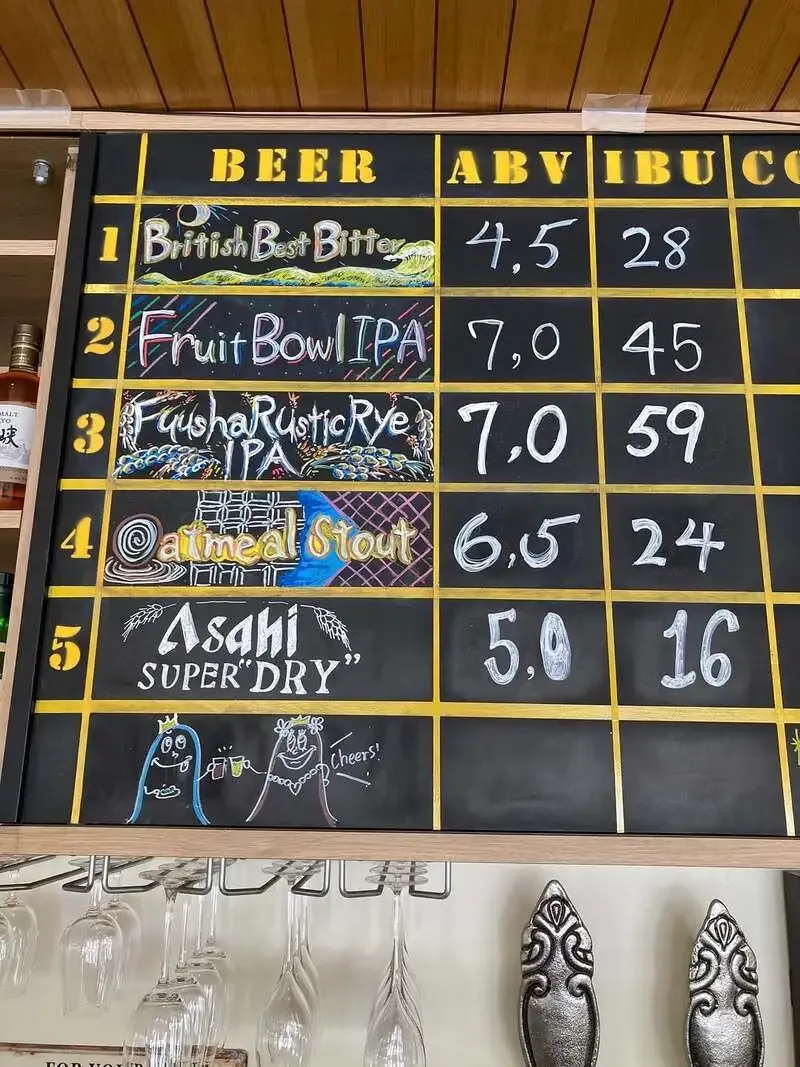 BEER ABV IBU CO
1 British Best Bitter 4.5 28
2 Fruit Bowl IPA 7,0 45
3 Fuusha Rustic Rye 7,0 59
IPA
4 Oatmeal Stout 6,5 24
5 Asahi 5,0 16
SUPER "DRY"
Cheers!
MALT
峡
FOR YOU